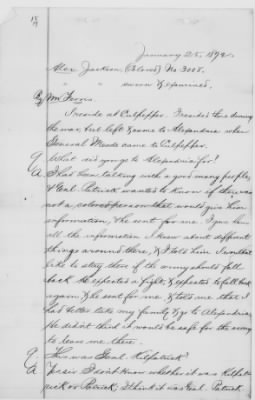 January 25, 1892.
Alex. Jackson, (Colored) No. 3008.
" " sworn & examined.
By Mr
I reside at Culpepper. I resided there during
the war, but left & came to Alexandria when
General Meade came to Culpepper.
Q What did you go to Alexandria for?
A I had been talking with a good many people,
& Genl. Patrick wanted to know if there was
not a colored person that would give him
information, & he sent for me. I gave him
all the information I knew about different
things around there, & I told him I would not
like to stay there if the army should fall
back. He expected a fight, & expected to fall back
again & he sent for me & told me that I
had better take my family & go to Alexandria.
He didn't think it would be safe for the army
to leave me there.
Q This was Genl. Kilpatrick?
A I don't know whether it was Kilpat-
rick or Patrick. I think it was Genl. Patrick